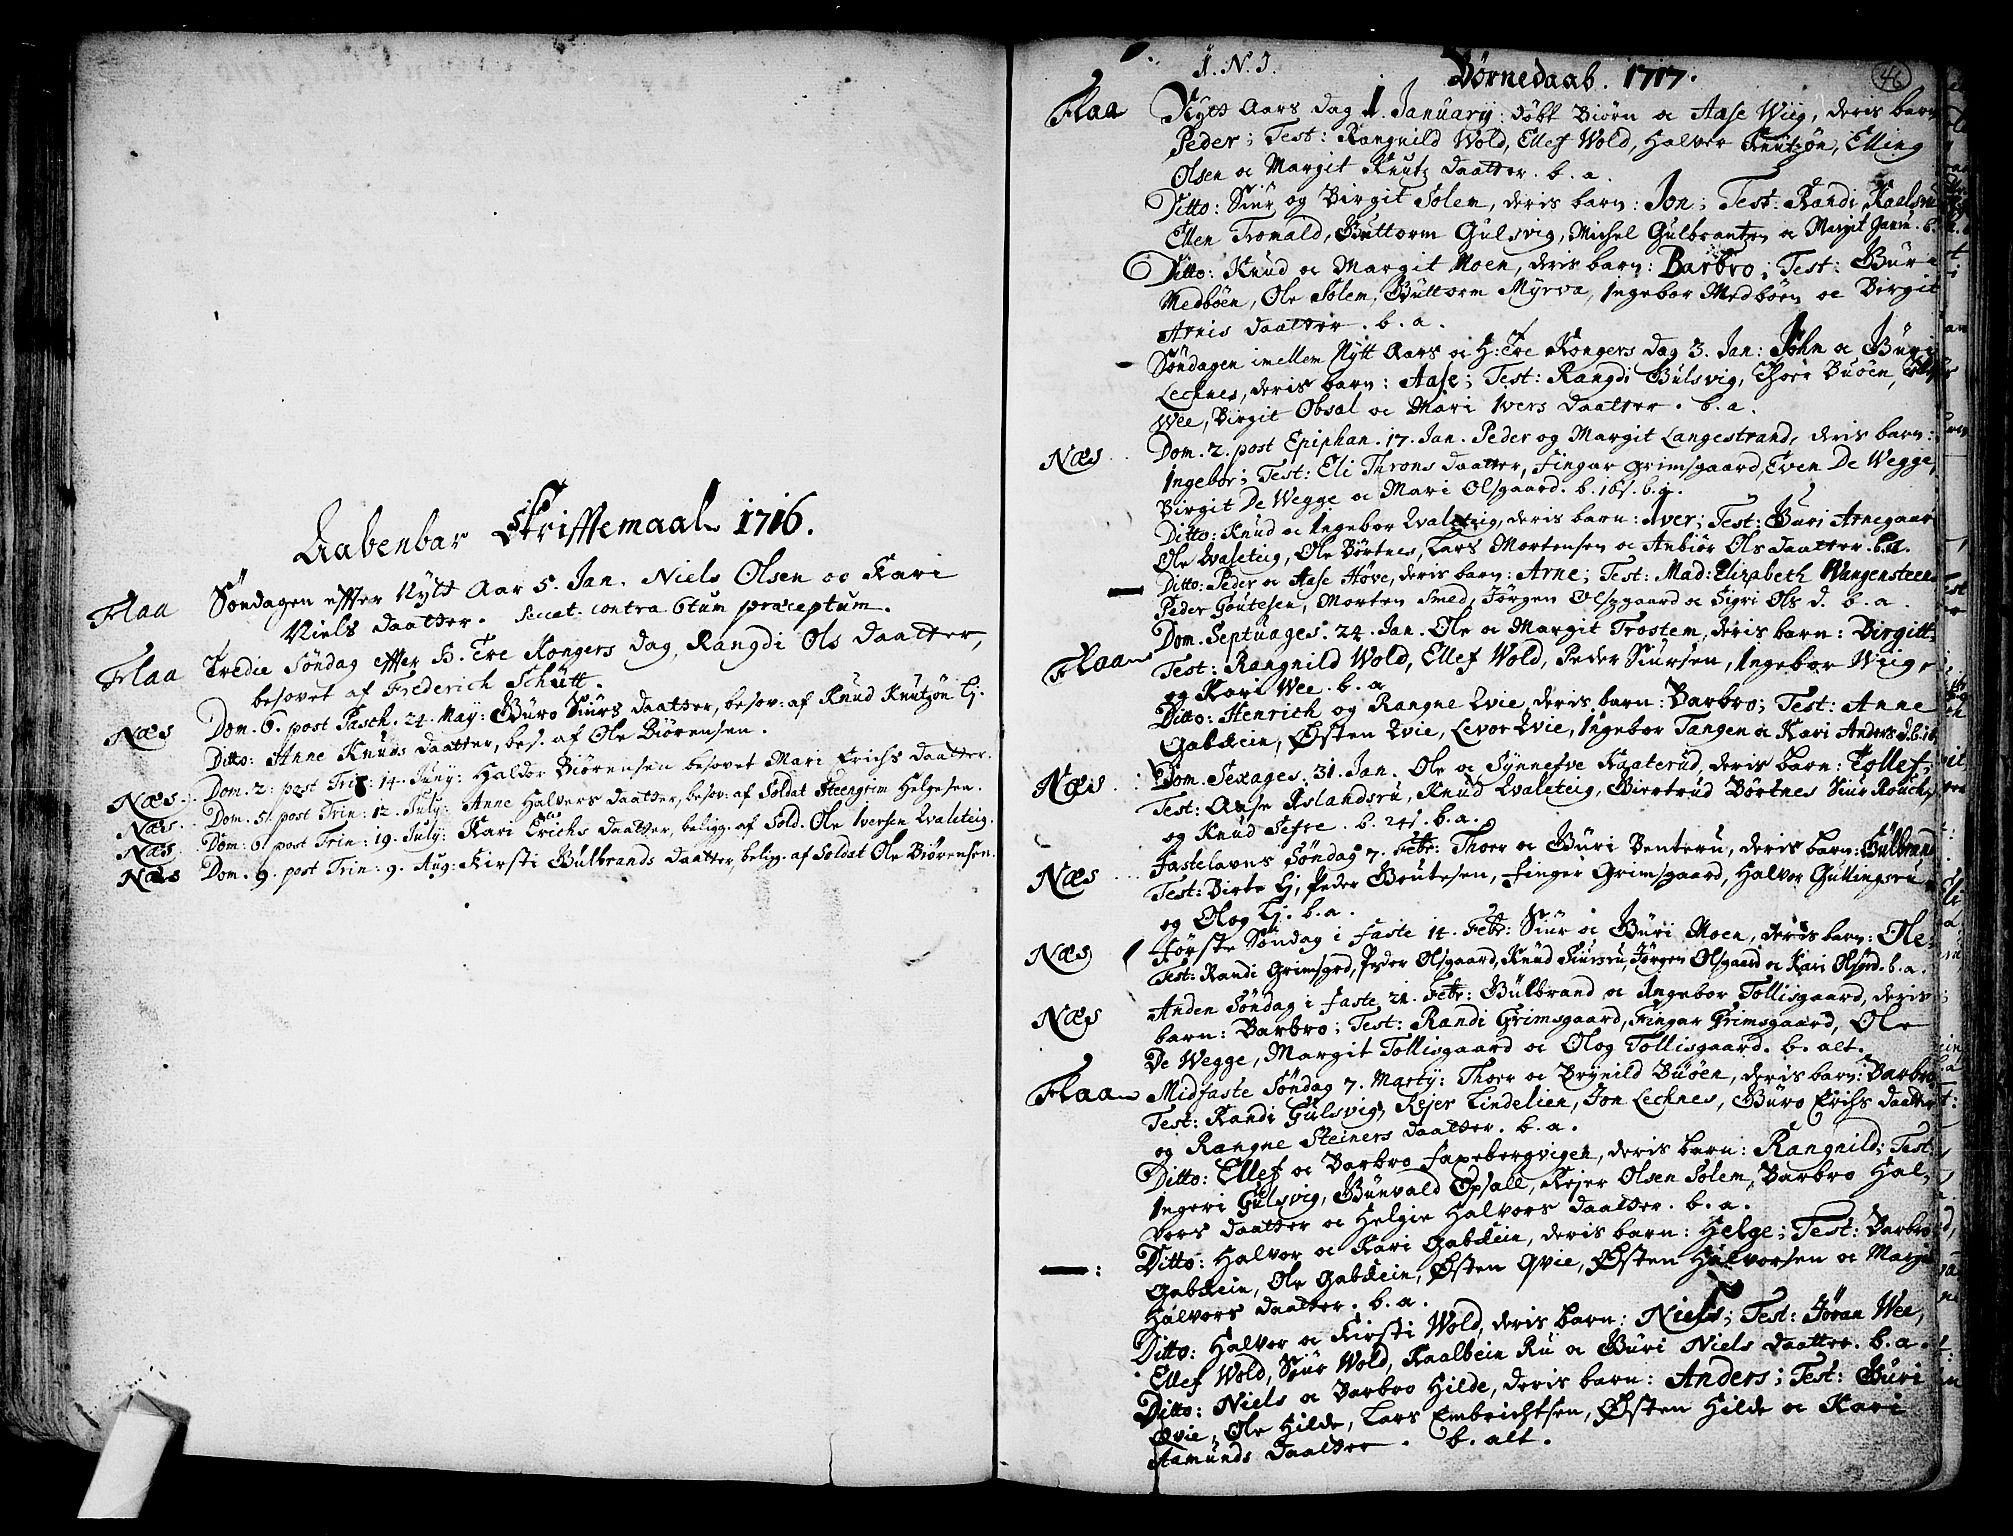 Aabenbar Skrifftemaal 1716.
Flaa Søndagen effter Nytt Aar 5. Jan. Niels Olsen oc Kari
Niels daatter. Peccat. contra 6tum præceptum.
Flaa Tredie Søndag effter H. Tre Kongers dag, Rangdi Ols daatter,
besovet af Frederich Schütt.
Næs Dom. 6. post Pasch. 24. May: Guro Siurs daatter, besov: af Knud Knutzøn Ej.
Ditto: Anne Knuds daatter, bes. af Ole Biørensen.
Næs Dom. 2. post Trin: 14. Juny: Haldor Biørensen besovet Mari Erichs daatter.
Næs Dom. 5. post Trin: 12. July: Anne Halvers daatter, besov: af Soldat Steengrim Helgesen.
Næs Dom: 6. post Trin: 19. July: Kari Erichs daatter, beligg. af Sold. Ole Iversen Qvaleteig.
Næs Dom. 9. post Trin: 9. Aug: Kirsti Gulbrands daatter, beligg. af Soldat Ole Biørensen.
I. N. J. Børnedaab. 1717. 46
Flaa Nytt Aars dag 1. January: døbt Biørn oc Aase Wiig, deris barn
Peder; Test: Rangnild Wold, Ellef Wold, Halver Knutzøn, Elling
Olsen oc Margit Knutz daatter. b. a.
Ditto: Siur og Birgit Solem, deris barn: Jon; Test: Randi
Ellen Tromald, Guttorm Gulsvig, Michel Gulbrantzen oc Margit
Ditto: Knud oc Margit Moen, deris barn: Barbro; Test: Guro
Medbøen, Ole Solem, Guttorm Myrva, Ingebor Medbøen oc Birgit
Arnis daatter. b. a.
Søndagen imellem Nytt Aars oc H: Tre Kongers dag 3. Jan: John oc Guri
Lechnes, deris barn: Aase; Test: Rangdi Gulsvig, Thore Buøen,
Wee, Birgit Obsal oc Mari Ivers daatter. b. a.
Næs Dom. 2. post Epiphan. 17. Jan. Peder og Margit Langestrand, deris barn:
Ingebor; Test: Eli Throns daatter, Fingar Grimsgaard, Even De Wegge,
Birgit De Wegge oc Mari Olsgaard. b.
Ditto: Knud oc Ingebor Qvaleteig, deris barn: Iver; Test: Guri Arnegaar
Ole Qvaleteig, Ole Børtnes, Lars Mortensen oc Anbiør Ols daatter.
Ditto: Peder oc Aase Høve, deris barn: Arne; Test: Mad: Elizabeth Wangensteen
Peder Goutesen, Morten Smed, Jørgen Olsgaard oc Sigri Ols d. b. a.
Flaa Dom. Septuages. 24. Jan. Ole oc Margit Trostem, deris barn: Birgitt
Test: Rangnild Wold, Ellef Wold, Peder Siursen, Ingebor Wiig
og Kari Wee. b. a
Ditto: Henrich og Rangne Qvie, deris barn: Barbro; Test: Anne
Gabdein, Østen Qvie, Levor Qvie, Ingebor Tangen oc Kari Anders d.
Næs Dom. Sexages. 31. Jan. Ole oc Synnefve Kaaterud, deris barn: Tollef;
Test: Aase Aslandsru, Knud Qvaleteig, Giertrud Børtnes Siur Rouch,
og Knud Sefre. b. a.
Næs Fastelavns Søndag 7. Febr: Thorr oc Guri Benteru, deris barn: Gulbrand
Test: Birte Ej, Peder Goutesen, Finger Grimsgaard, Halvor Gullingsru
og Olog Ej. b. a.
Næs Første Søndag i Faste 14. Febr: Siur oc Guri Moen, deris barn: Ole:
Test: Randi Grimsgrd, Peder Olsgaard, Knud Siursru, Jørgen Olsgaard oc Kari Olsgrd. b. a.
Næs Anden Søndag i Faste 21. Febr: Gulbrand oc Ingebor Tollisgaard, deris
barn: Barbro; Test: Randi Grimsgaard, Fingar Grimsgaard, Ole
De Wegge, Margit Tollisgaard oc Olog Tollisgaard. b. alt.
Flaa Midfaste Søndag 7. Marty: Thorr oc Brynild Buøen, deris barn: Barbro
Test: Randi Gulsvig, Rejer Lindelien, Jon Lechnes, Guro Erichs daatter
og Rangne Steiners daatter. b. a.
Ditto: Ellef oc Barbro Faxebergvigen, deris barn: Rangnild; Test:
Ingeri Gulsvig, Gunvald Opsall, Rejer Olsen Solem, Barbro Hal-
vors daatter oc Helgie Halvors daatter. b. a.
Ditto: Halvor oc Kari Gabdein, deris barn: Helge; Test: Barbro
Gabdein, Ole Gabdein, Østen Qvie, Østen Halvorsen oc Margit
Halvors daatter. b. a.
Ditto: Halvor oc Kirsti Wold, deris barn: Niels; Test: Jøran Wee,
Ellef Wold, Siur Wold, Kaalbein Ru oc Guri Niels daatter. b. a.
Ditto: Niels oc Barbro Hilde, deris barn: Anders; Test: Guri
Qvie, Ole Hilde, Lars Embrichtsen, Østen Hilde oc Kari
Aamunds daatter. b. alt.